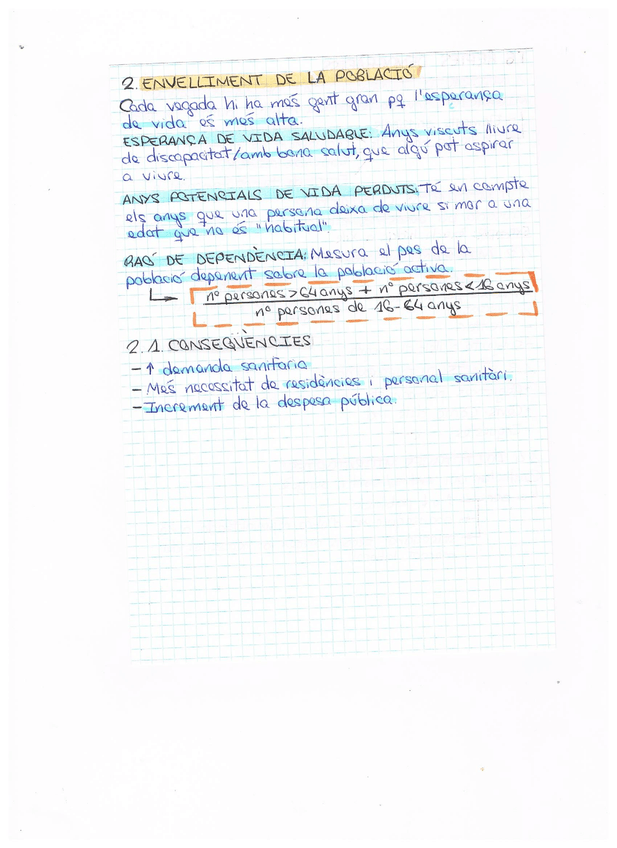 2. ENVELLIMENT DE LA POBLACIÓ
Cada vegada hi ha més gent gran pq l'esperança
de vida és més alta.
ESPERANÇA DE VIDA SALUDABLE: Anys viscuts lliure
de discapacitat/amb bona salut, que algú pot aspirar
a viure.
ANYS POTENCIALS DE VIDA PERDUTS: Té en compte
els anys que una persona deixa de viure si mor a una
edat que no és "habitual".
RAÓ DE DEPENDÈNCIA: Mesura el pes de la
població depenent sobre la població activa.
↳ nº persones > 64 anys + nº persones < 16 anys
nº persones de 16-64 anys
2.1. CONSEQÜÈNCIES
- ↑ demanda sanitaria
- Més necessitat de residències i personal sanitàri.
- Increment de la despesa pública.